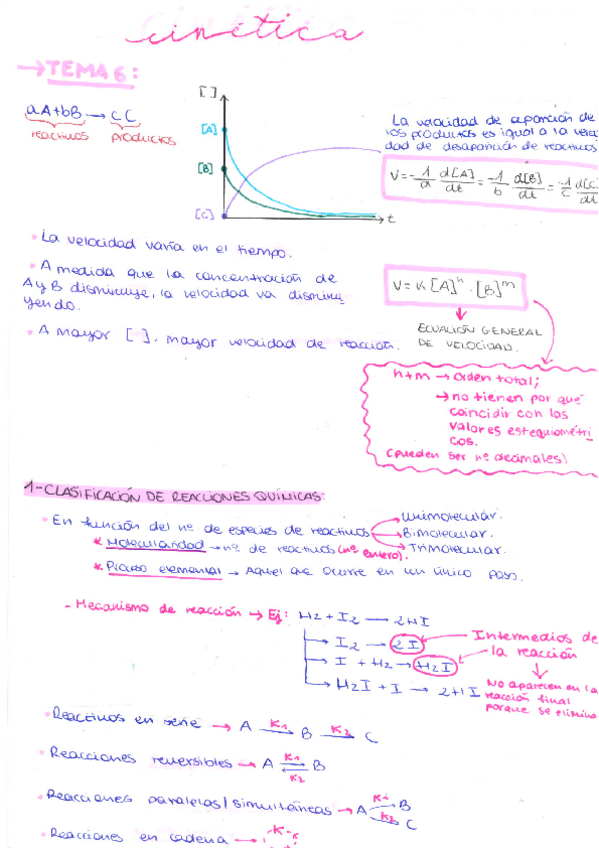 cinética
→ TEMA 6:
aA+bB → cC
reactivos productos
[ ]
[A]
[B]
[C]
t
La velocidad de aparición de
los productos es igual a la velo
dad de desaparición de reactivos
V=-1/a d[A]/dt = -1/b d[B]/dt = -1/c d[C]/dt
• La velocidad varía en el tiempo.
• A medida que la concentración de
A y B disminuye, la velocidad va disminu-
yendo.
• A mayor [ ], mayor velocidad de reacción.
V=K[A]ⁿ·[B]ᵐ
ECUACIÓN GENERAL
DE VELOCIDAD.
n+m → orden total;
→ no tienen por qué
coincidir con los
valores estequiométri
cos.
(pueden ser nº decimales)
1-CLASIFICACIÓN DE REACCIONES QUÍMICAS:
• En función del nº de especies de reactivos
Unimolecular.
Bimolecular.
Trimolecular.
* Molecularidad → nº de reactivos (nº entero).
* Proceso elemental → Aquel que ocurre en un único paso.
- Mecanismo de reacción → Ej: H2 + I2 → 2HI
I2 → 2I
I + H2 → H2I
H2I + I → 2HI
Intermedios de
la reacción
No aparecen en la
reacción final
porque se elimina
• Reactivos en serie → A K1→ B K2→ C
• Reacciones reversibles → A K1 ⇌ K2 B
• Reacciones paralelas/simultáneas → A K1 B
K2 C
• Reacciones en cadena →